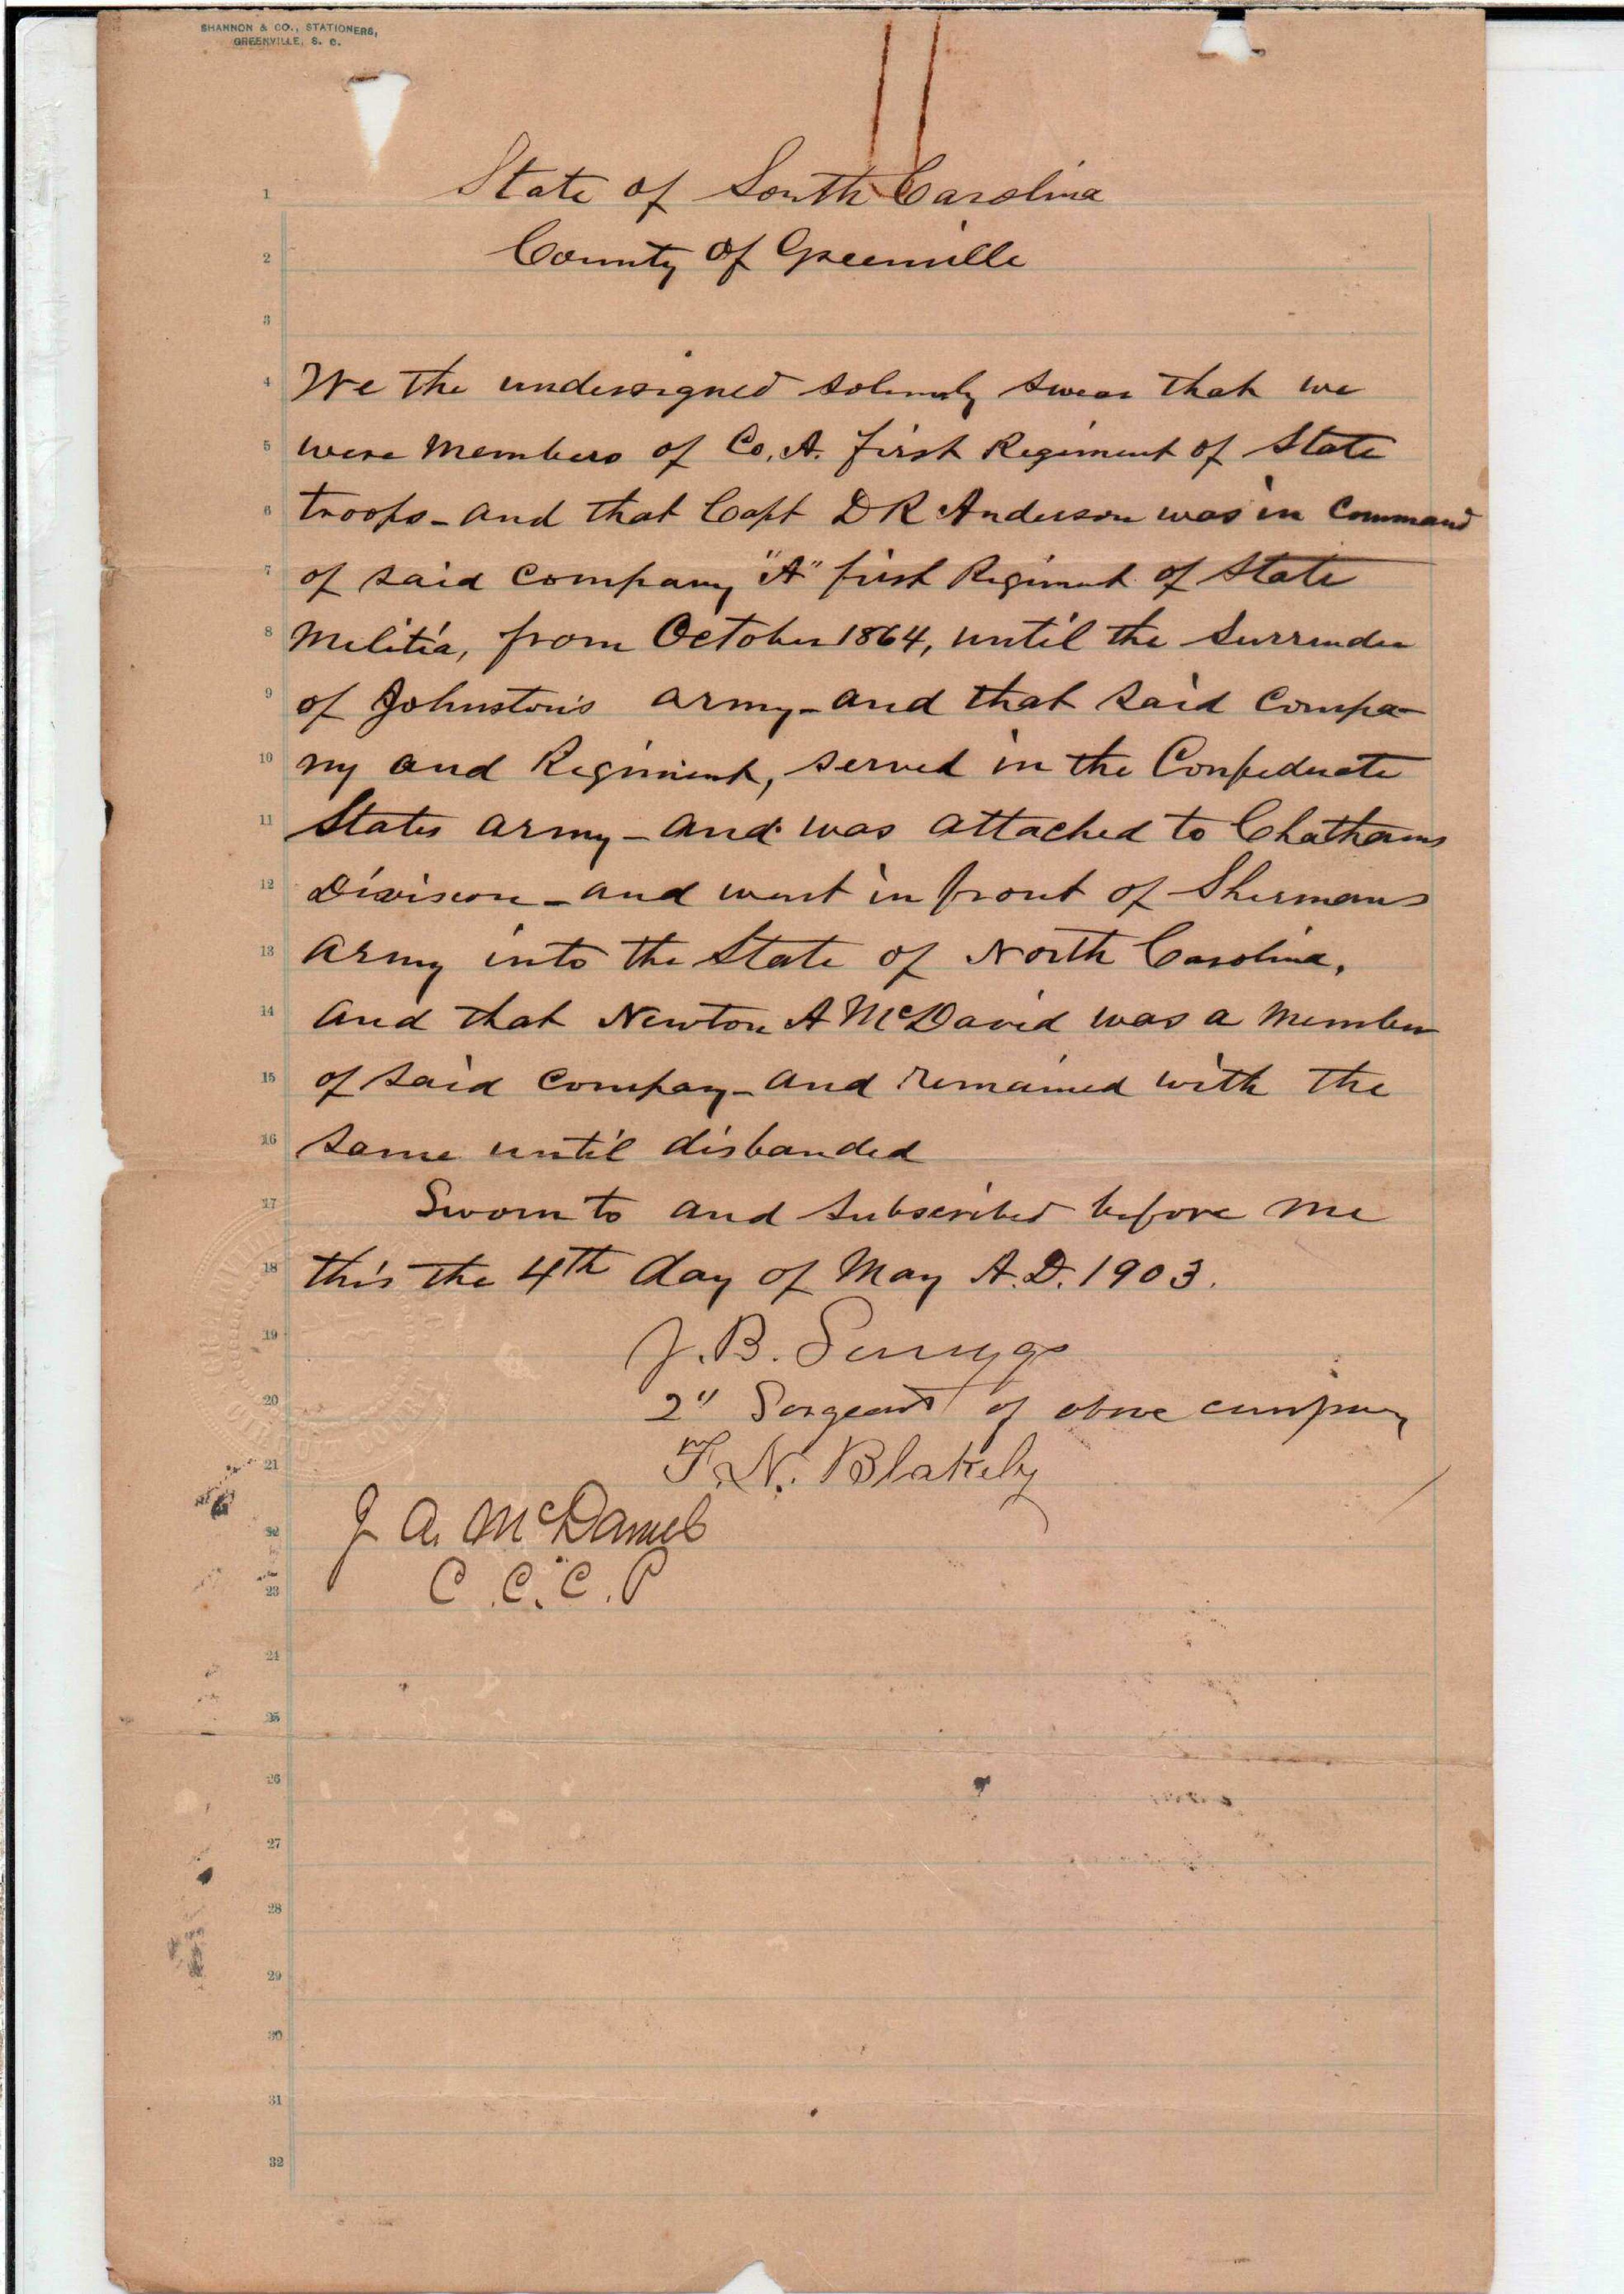 SHANNON & CO., STATIONERS,
GREENVILLE, S. C.
1 State of South Carolina
2 County of Greenville
3
4 We the undersigned solemnly swear that we
5 were members of Co. A. first Regiment of State
6 troops - and that Capt D R Anderson was in command
7 of said company "A" first Regiment of State
8 Militia, from October 1864, until the surrender
9 of Johnston's army - and that said compa-
10 ny and Regiment, served in the Confederate
11 States army - and was attached to Chathams
12 Division - and went in front of Shermans
13 army into the State of North Carolina,
14 and that Newton A McDavid was a member
15 of said company - and remained with the
16 same until disbanded
17 Sworn to and subscribed before me
18 this the 4th day of May A.D. 1903.
19 J. B. Scruggs
20 2" Sergeant of above company
21 T. N. Blakely
22 J A. McDaniel
23 C. C. C. P
24
25
26
27
28
29
30
31
32